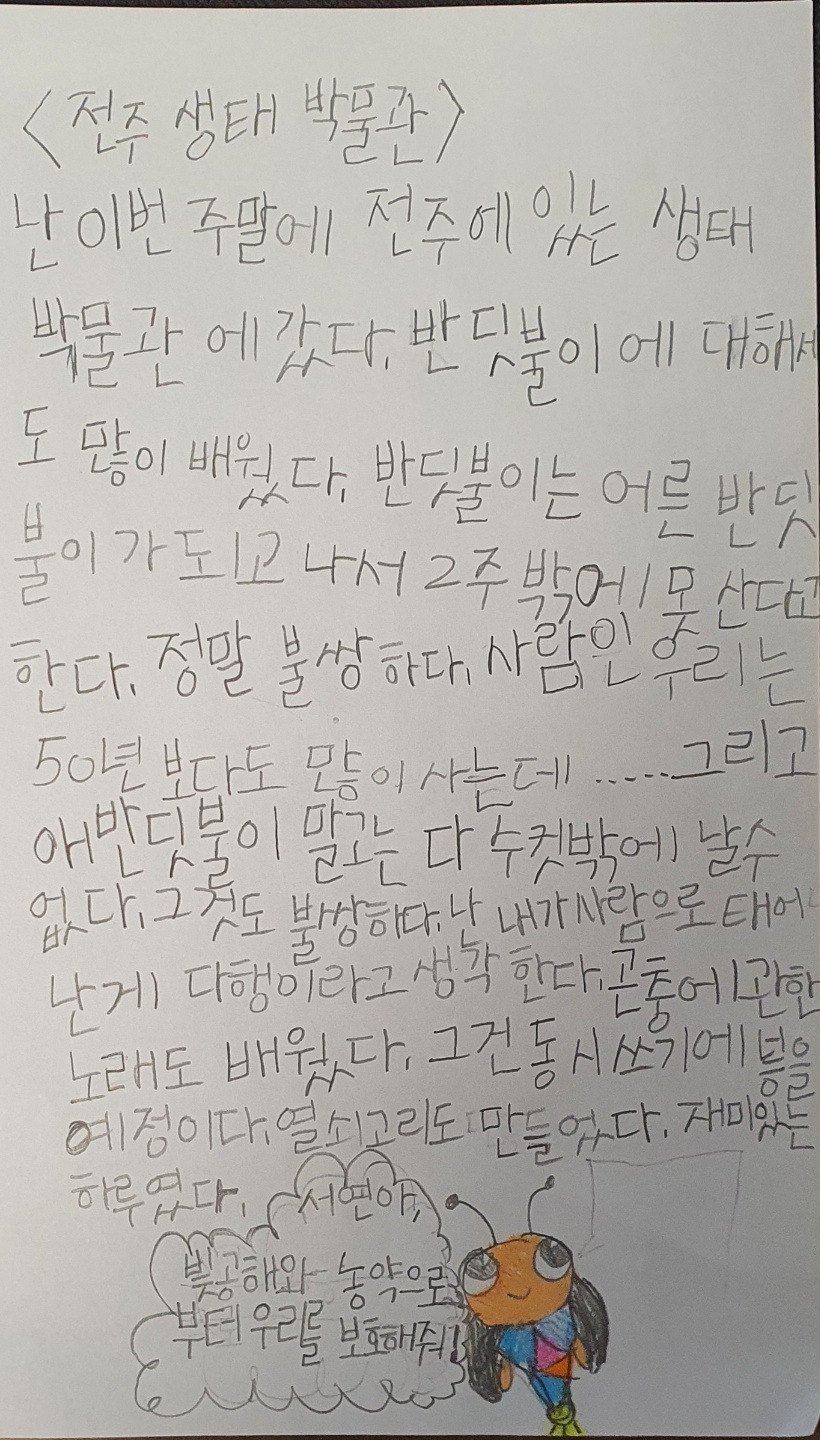 <전주 생태 박물관>
난 이번 주말에 전주에 있는 생태
박물관 에 갔다. 반딧불이 에 대해서
도 많이 배웠다. 반딧불이는 어른 반딧
불이 가 되고 나서 2주 밖에 못 산다고
한다. 정말 불쌍하다. 사람인 우리는
50년 보다도 많이 사는데 .....그리고
애반딧불이 말고는 다 수컷밖에 날수
없다. 그것도 불쌍하다. 난 내가 사람으로 태어
난게 다행이라고 생각 한다. 곤충에 관한
노래도 배웠다. 그건 동시쓰기에 넣을
예정이다. 열쇠고리도 만들었다. 재미있는
하루였다.
서연아,
빛공해와 농약으로
부터 우리를 보호해줘!